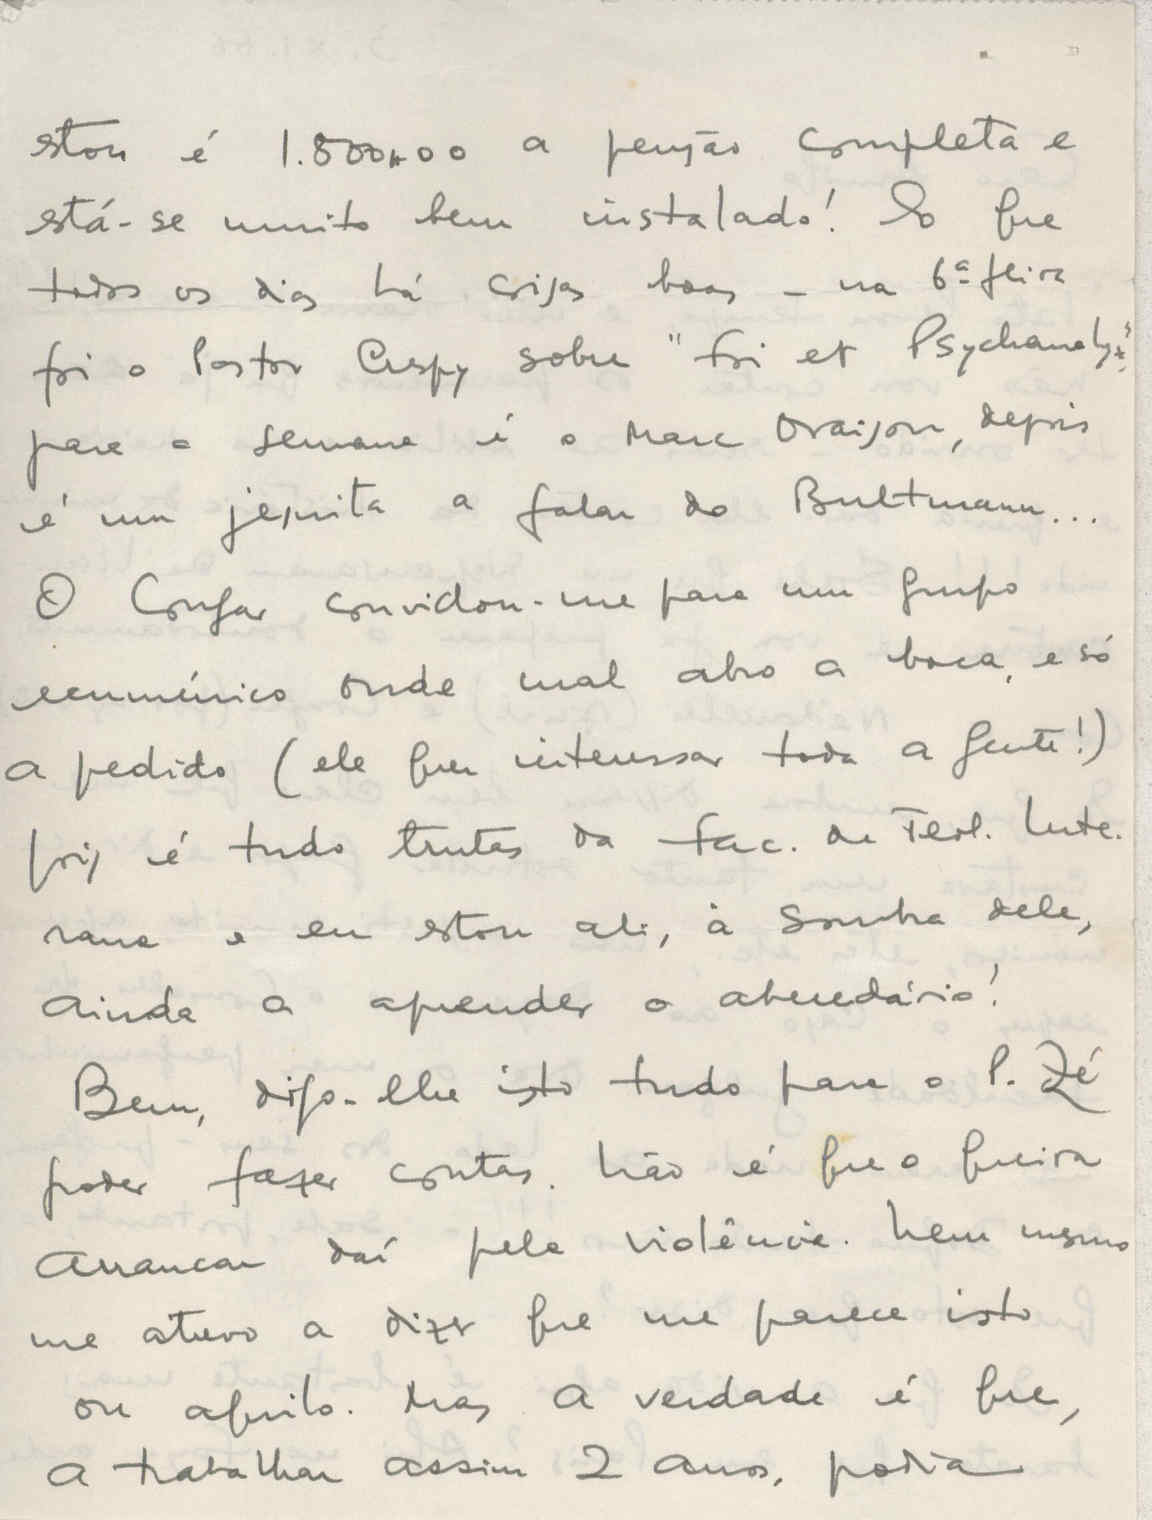 estou é 1.800$00 a pensão completa e
está-se muito bem instalado! Só que
todos os dias há coisas boas - na 6ª feira
foi o Pastor Crespy sobre "Foi et Psychanalyse"
para a semana é o Marc Oraison, depois
é um jesuíta a falar do Bultmann...
O Congar convidou-me para um grupo
ecuménico onde mal abro a boca, e só
a pedido (ele quer interessar toda a gente!)
pois é tudo trutas da Fac. de Teol. Lute-
rana e eu estou ali, à sombra dele,
ainda a aprender o abecedário!
Bem, digo-lhe isto tudo para o P. Zé
poder fazer contas. Não é que o queira
arrancar daí pela violência. Nem mesmo
me atrevo a dizer que me parece isto
ou aquilo. Mas a verdade é que,
a trabalhar assim 2 anos, podia